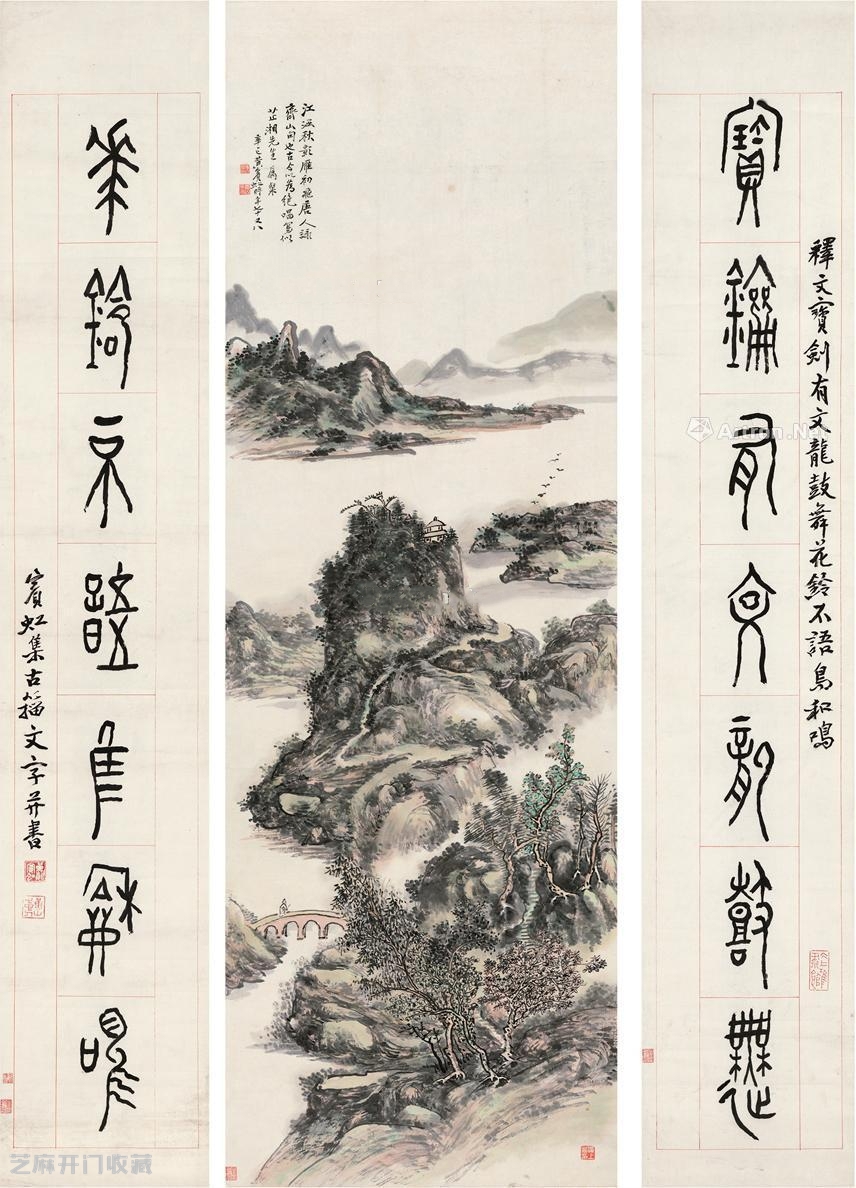 釋文寶劍有文龍鼓舞花鈴不語鳥和鳴
寶劍有文龍鼓舞
江涵秋影雁初飛唐人詠
齊山句也古今以為絕唱寫似
芷湘先生屬粲
辛巳黃賓虹時年七十又八
華鈴不語鳥和鳴
賓虹集古籀文字并書
Artron.Net
芝麻开门收藏